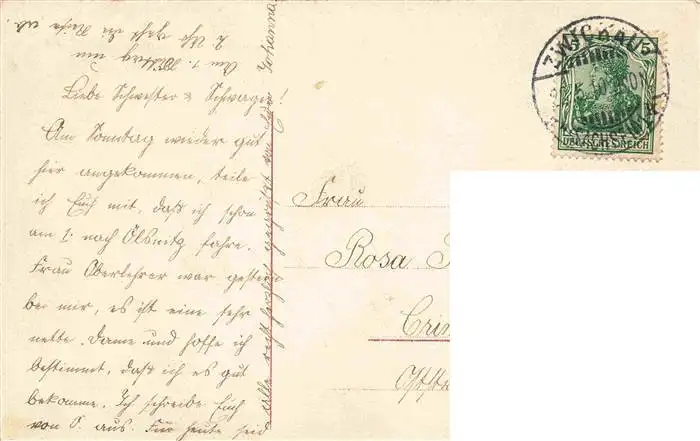 Liebe Schwester & Schwager!
Am Sonntag wieder gut
hier angekommen, teile
ich Euch mit, daß ich schon
am 1. nach Ölsnitz fahre.
Frau Oberlehrer war gestern
bei mir, es ist eine sehr
nette Dame und hoffe ich
bestimmt, daß ich es gut
bekomme. Ich schreibe Euch
von O. aus. Für heute seid
alle recht herzlich gegrüßt von Eurer Johanna
Am 1. Mittag um
2 Uhr geht die Reise ab.
Frau
Rosa
Crim
Oststr
ZWICKAU
DEUTSCHES REICH